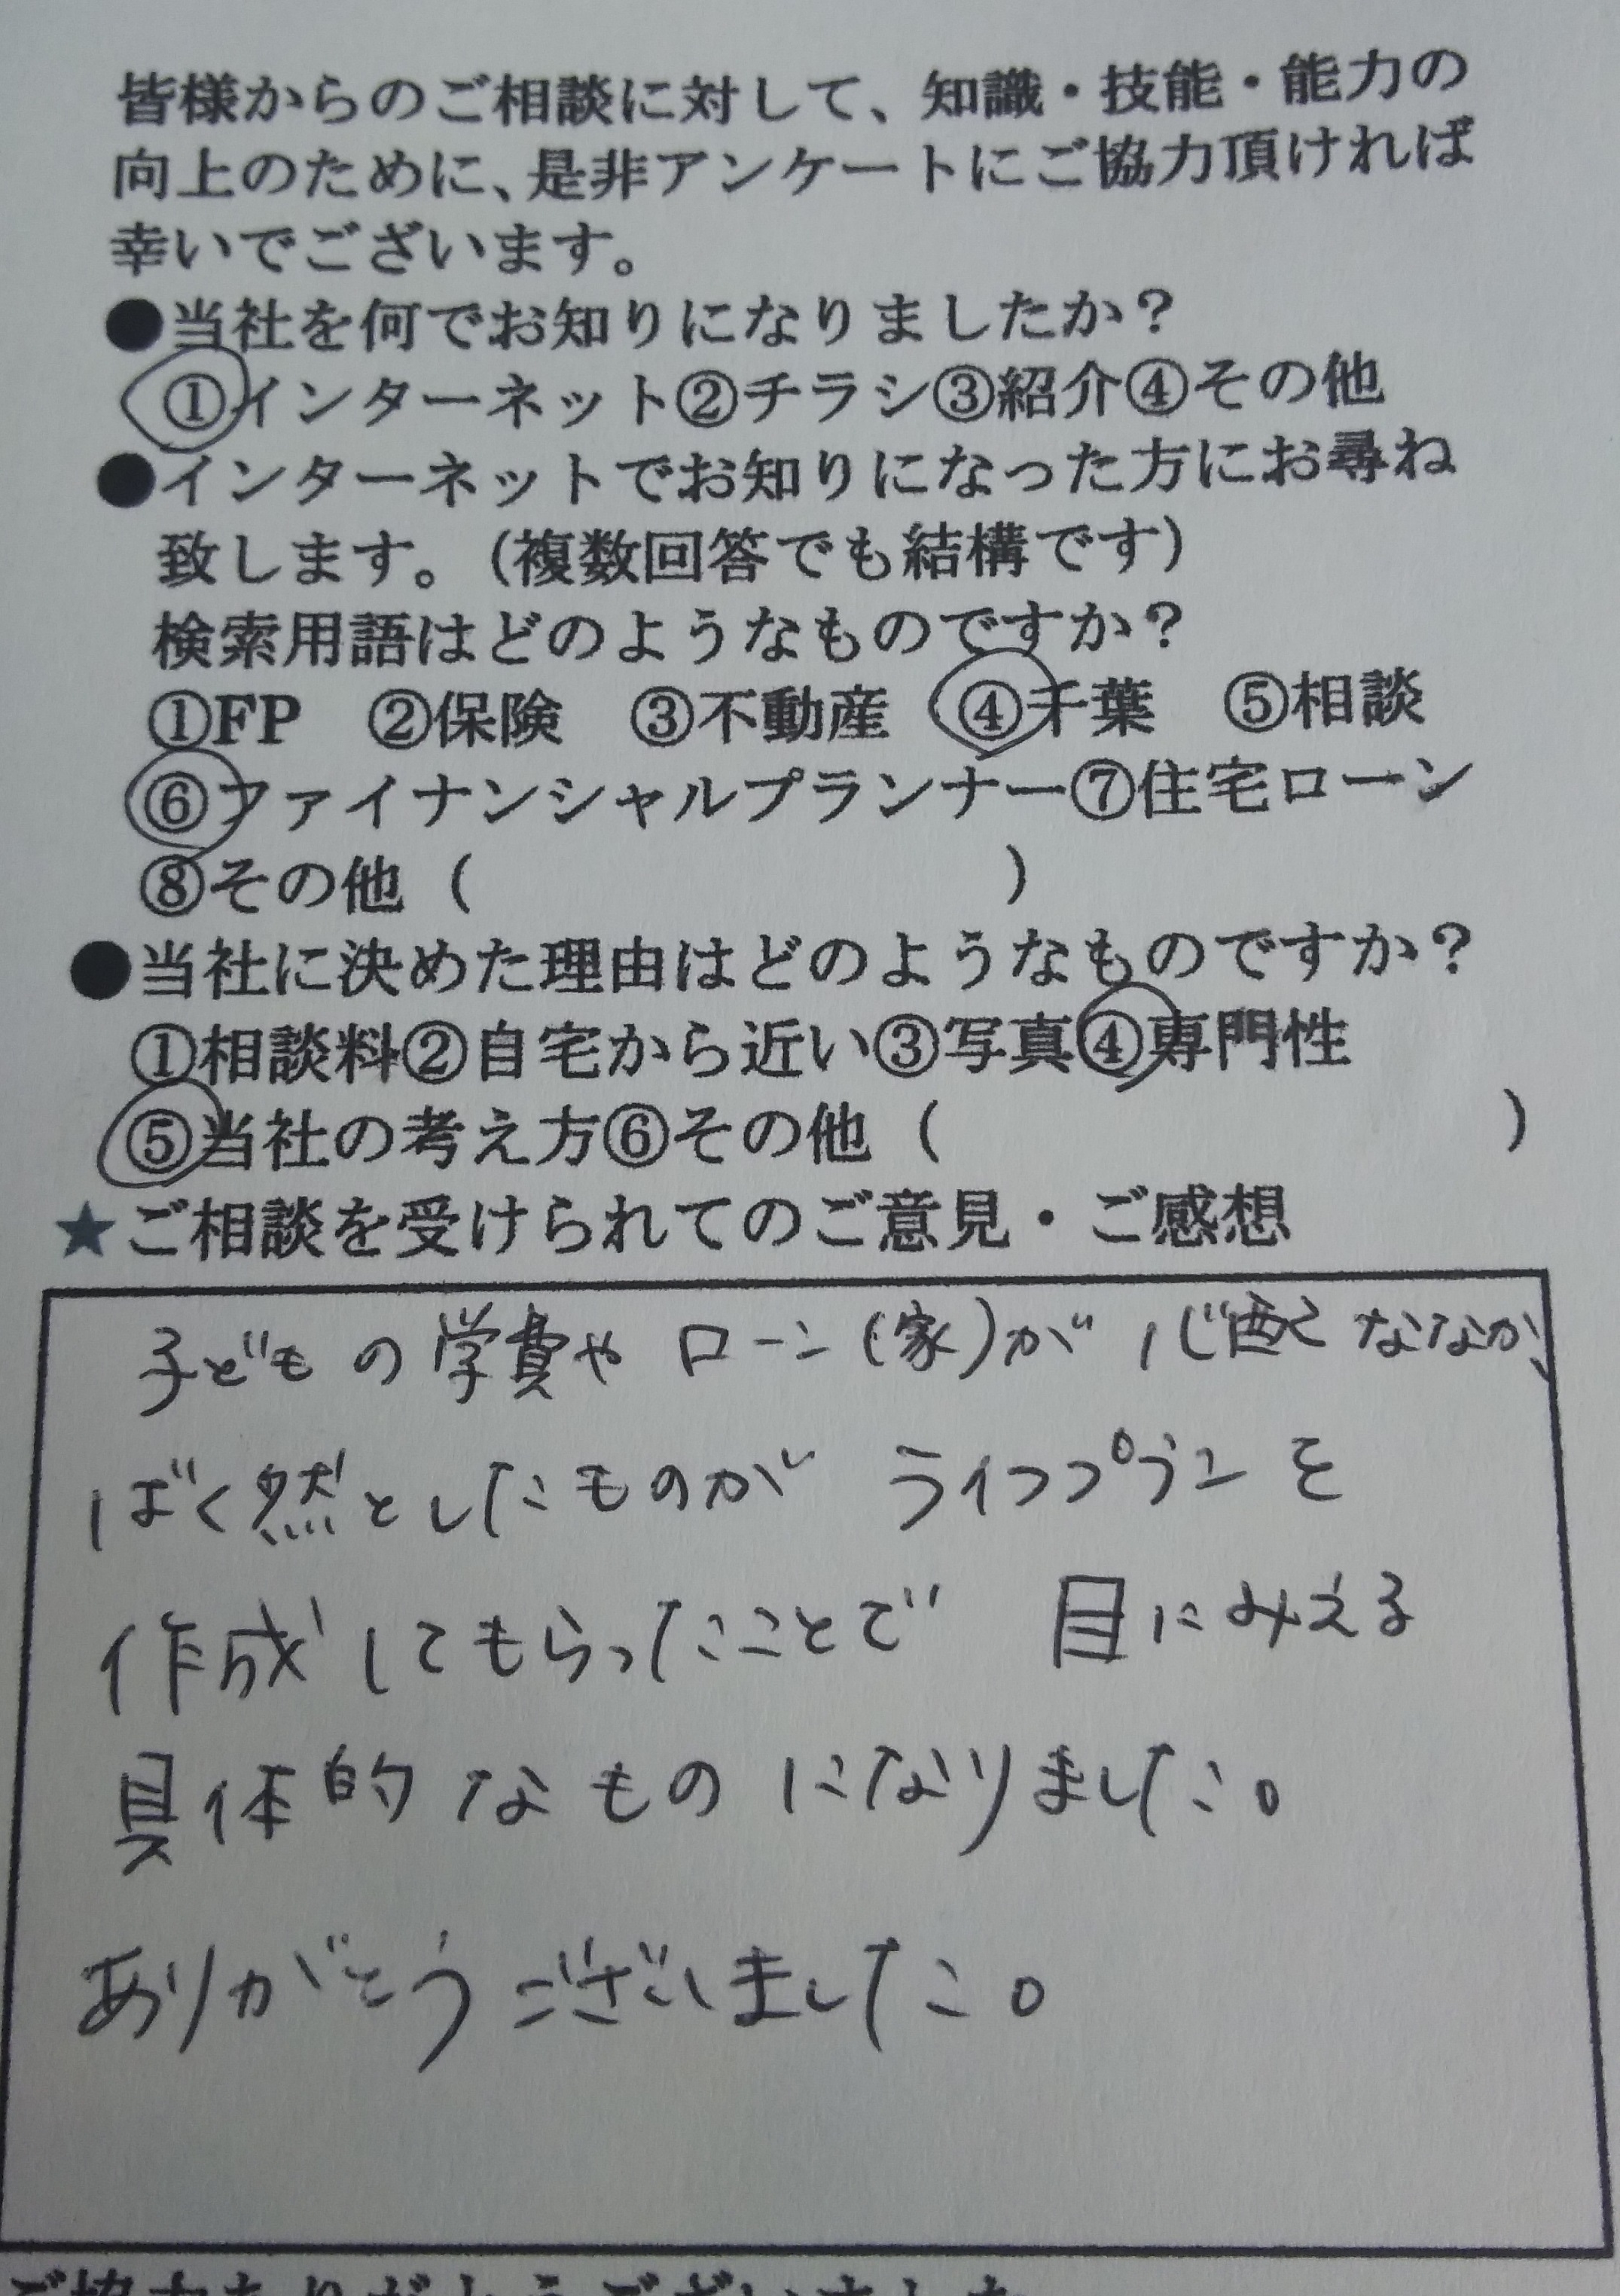 皆様からのご相談に対して、知識・技能・能力の
向上のために、是非アンケートにご協力頂ければ
幸いでございます。
●当社を何でお知りになりましたか？
①インターネット②チラシ③紹介④その他
●インターネットでお知りになった方にお尋ね
致します。（複数回答でも結構です）
検索用語はどのようなものですか？
①FP ②保険 ③不動産 ④千葉 ⑤相談
⑥ファイナンシャルプランナー⑦住宅ローン
⑧その他（ ）
●当社に決めた理由はどのようなものですか？
①相談料②自宅から近い③写真④専門性
⑤当社の考え方⑥その他（ ）
★ご相談を受けられてのご意見・ご感想
子どもの学費や ローン（家）が 心配なななか、
ばく然としたものが ライフプランを
作成してもらったことで 目にみえる
具体的なものになりました。
ありがとうございました。
ご協力ありがとうございました